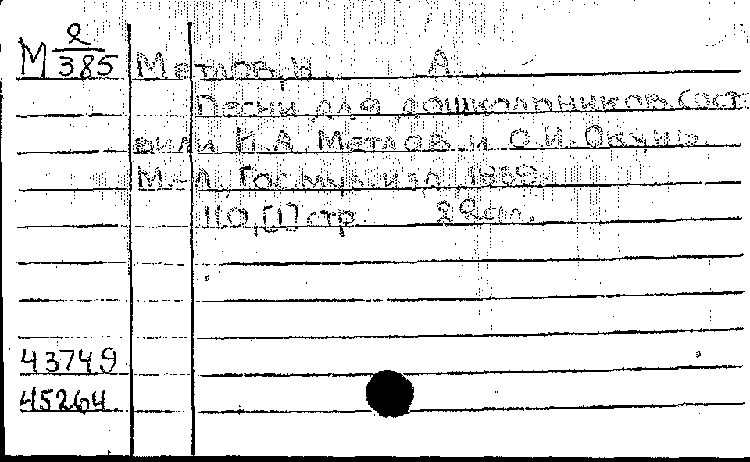 М 2/385
Метлов, Н. А.
Песни для дошкольников. Сост
вили Н. А. Метлов и
М.-Л., Госмузиздат,
110, [1] стр. 29 см.
43749
45264